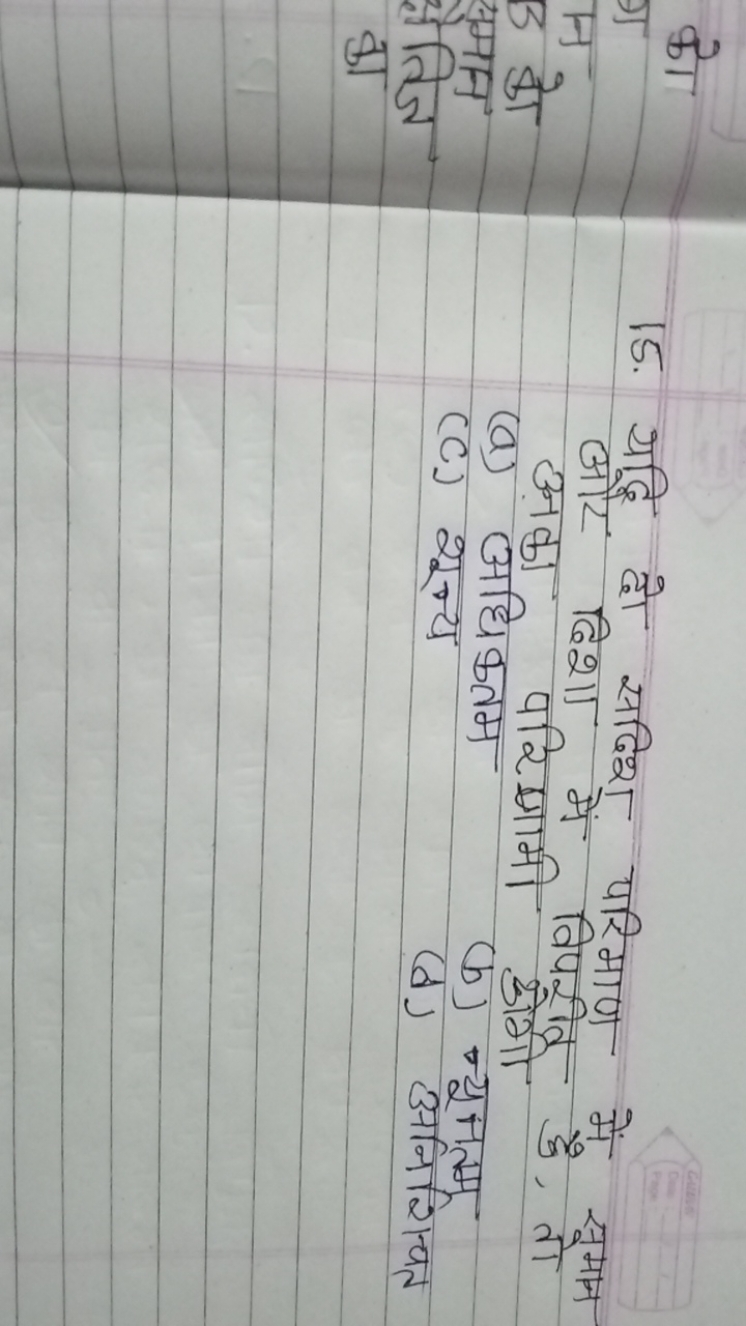 को
न
B को
समान
का
15. यदि दो सदिश परिमाण में समान
और दिशा में विपरीत है, तो
उनका परिणामी होगा
(a) अधिकतम (b) न्यूनतम
(c) शून्य (d) अनिश्चित